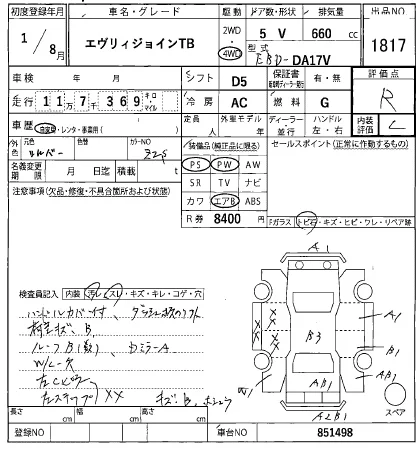 初度登録年月 車名・グレード 駆動 ドア数・形状 排気量 出品NO
1/8月 エヴリィジョインTB 2WD・4WD 5 V 660 cc 1817
型式 EBD-DA17V
車検 年 月 シフト D5 保証書 有・無 評価点
走行 117千369 キロ・マイル 冷房 AC 燃料 G R
車歴 自家用・レンタ・事業用( ) 定員 人 外里モデル 年 ディーラー・並行 ハンドル 左・右 内装評価 C
外装 元色 シルバー 色替 カラーNO Z2S 装備品(純正品に限る) セールスポイント(正常に作動するもの)
名義変更期限 月 日迄 積載 t PS PW AW
注意事項(欠品・修復・不具合箇所および状態) SR TV ナビ
カワ エアB ABS
R券 8400 Fガラス トビ石・キズ・ヒビ・ワレ・リペア跡
A1
検査員記入 内装 汚レ・スレ・キズ・キレ・コゲ・穴
ハンドルカバー付、
内装キズ、B
ルーフB(数)、DミラーA
左Cピラー
左ステップXX キズ、B
XX XX B3 A1
B1
AB1 AB1
W1
A2B1 スペア
長さ cm 幅 cm 高さ cm
登録NO 車台NO 851498